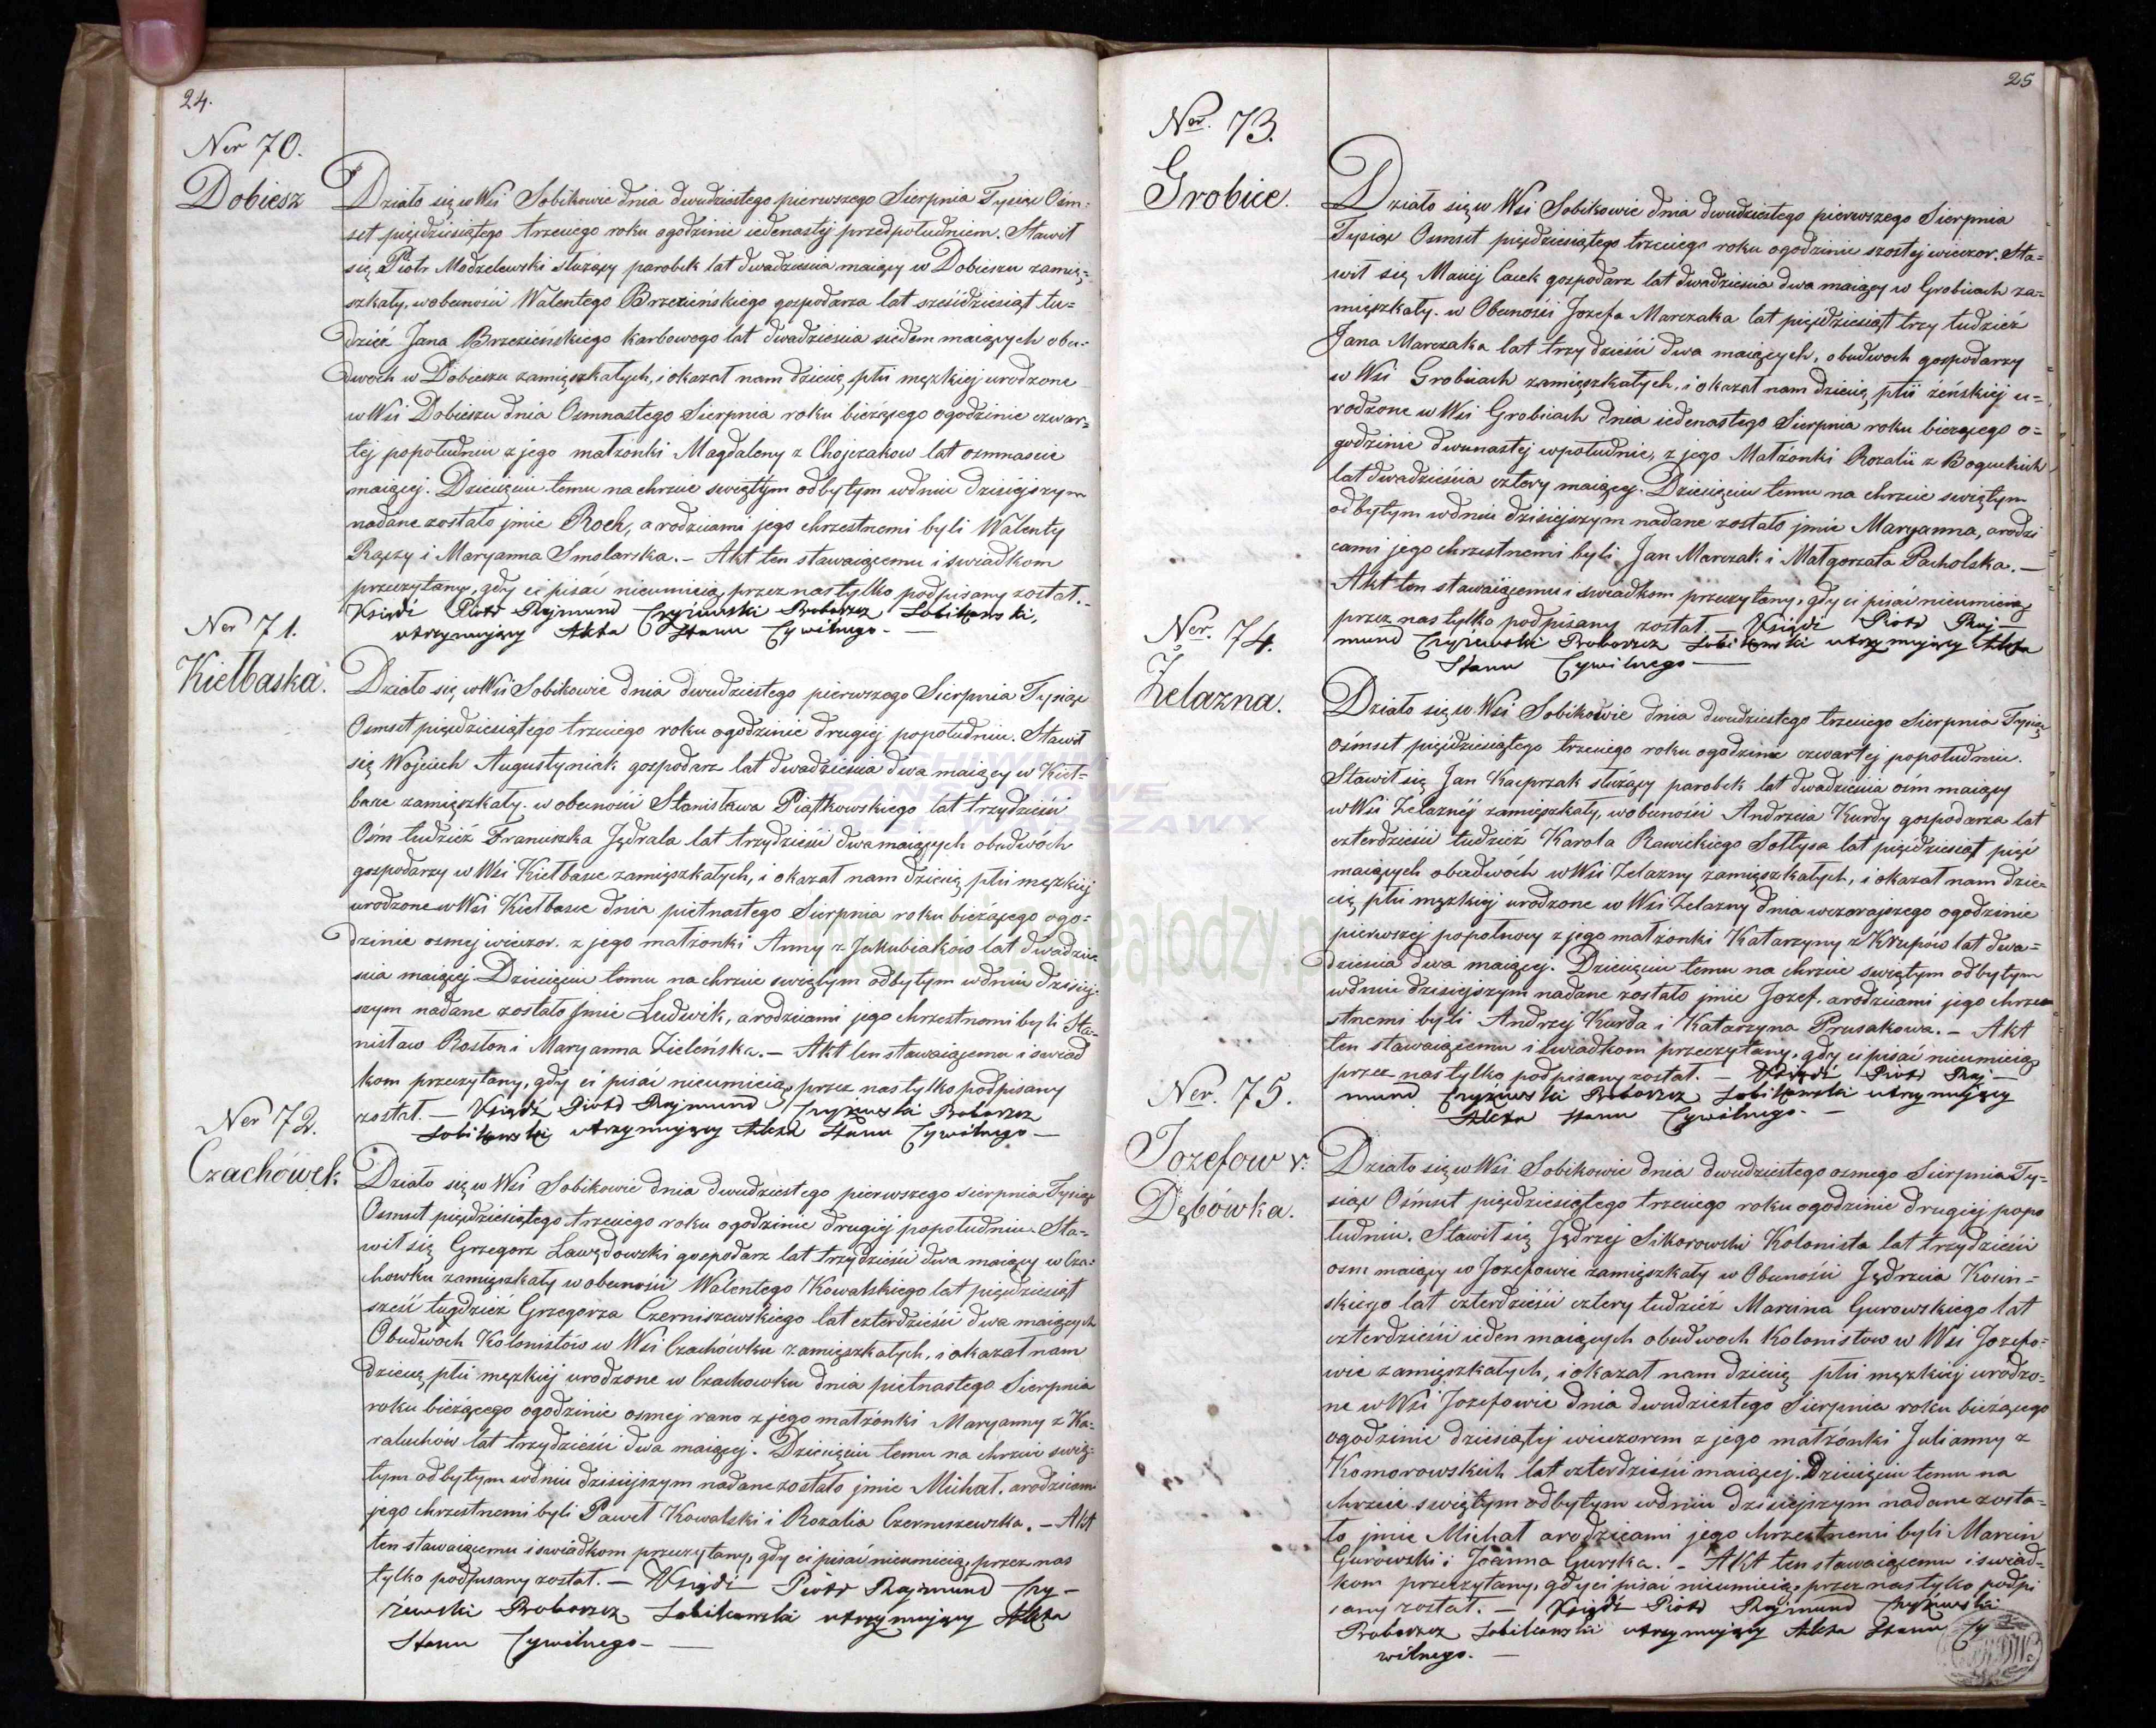 24.
Ner 70.
Dobiesz
Działo się w Wsi Sobikowie dnia dwudziestego pierwszego Sierpnia Tysiąc Ośm=
set piędziesiątego trzeciego roku ogodzinie iedenastej przedpołudniem. Stawił
się Piotr Modzelewski służący parobek lat dwadzieścia maiący w Dobieszu zamię=
szkały, wobecności Walentego Brzezieńskiego gospodarza lat sześćdziesiąt tu=
dzież Jana Brzezieńskiego karbowego lat dwadzieścia siedem maiących obu=
dwoch w Dobieszu zamięszkałych, i okazał nam dziecię płci męzkiej urodzone
w Wsi Dobieszu dnia Osmnastego Sierpnia roku bieżącego ogodzinie czwar=
tej popołudniu z jego małżonki Magdaleny z Chojczakow lat osmnaście
maiącej. Dziecięciu temu na chrzcie świętym odbytym wdniu dzisiejszym
nadane zostało jmie Roch, a rodzicami jego chrzestnemi byli Walenty
Rączy i Maryanna Smolarska. – Akt ten stawaiącemu i swiadkom
przeczytany, gdy ci pisać nieumieią przez nas tylko podpisany został. –
Ksiądz Piotr Rajmund Czyżewski Proboszcz Sobikowski,
utrzymujący Akta Stanu Cywilnego. —
Ner 71.
Kiełbaska.
Działo się w Wsi Sobikowie dnia dwudziestego pierwszego Sierpnia Tysiąc
Osmset piędziesiątego trzeciego roku ogodzinie drugiej popołudniu. Stawił
się Wojciech Augustyniak gospodarz lat dwadzieścia dwa maiący w Kieł=
basce zamięszkały. w obecności Stanisława Piątkowskiego lat trzydzieści
Ośm tudzież Franciszka Jędrala lat trzydzieści dwa maiących obudwóch
gospodarzy w Wsi Kiełbasce zamięszkałych, i okazał nam dziecię płci męzkiej
urodzone w Wsi Kiełbasce dnia pietnastego Sierpnia roku bieżącego ogo=
dzinie osmej wieczor. z jego małżonki Anny z Jakubiaków lat dwadzie=
ścia maiącej Dziecięciu temu na chrzcie świętym odbytym wdniu dzisiej=
szym nadane zostało jmie Ludwik, a rodzicami jego chrzestnemi byli Sta=
nisław Rosłon i Maryanna Zieleńska. – Akt ten stawaiącemu i swiad
kom przeczytany, gdy ci pisać nieumieią, przez nas tylko podpisany
został. – Ksiądz Piotr Rajmund Czyżewski Proboszcz
Sobikowski utrzymujący Akta Stanu Cywilnego —
Ner 72.
Czachówek
Działo się w Wsi Sobikowie dnia dwudziestego pierwszego sierpnia Tysiąc
Osmset pięździesiątego trzeciego roku ogodzinie drugiej popołudniu Sta=
wił się Grzegorz Lawędowski gospodarz lat trzydzieści dwa maiący w Cza=
chowku zamięszkały w obecności Walentego Kowalskiego lat pięćdziesiąt
sześć tugdzież Grzegorza Czerniszewskiego lat czterdzieści dwa maiących
Obudwoch Kolonistów w Wsi Czachówku zamięszkałych, i okazał nam
dziecię płci męzkiej urodzone w Czachowku dnia pietnastego Sierpnia
roku bieżącego ogodzinie osmej rano z jego małżonki Maryanny z Ka=
raluchów lat trzydzieści dwa maiącej. Dziecięciu temu na chrzcie swię=
tym odbytym wdniu dzisiejszym nadane zostało jmie Michał. arodzicami
jego chrzestnemi byli Paweł Kowalski i Rozalia Czerniszewska. – Akt
ten stawaiącemu i swiadkom przeczytany, gdy ci pisać nieumieią, przez nas
tylko podpisany został. – Ksiądz Piotr Rajmund Czy–
żewski Proboszcz Sobikowski utrzymujący Akta
Stanu Cywilnego – —
25
Ner. 73.
Grobice.
Działo się w Wsi Sobikowie dnia dwudziestego pierwszego Sierpnia
Tysiąc Osmset pięździesiątego trzeciego roku ogodzinie szostej wieczor. Sta=
wił się Maciej Cacek gospodarz lat dwadzieścia dwa maiący w Grobicach za=
mięszkały. w Obecności Jozefa Marczaka lat pięćdziesiąt trzy tudzież
Jana Marczaka lat trzydzieści dwa maiących, obudwoch gospodarzy
w Wsi Grobicach zamięszkałych, i okazał nam dziecię płci żeńskiej u=
rodzone w Wsi Grobicach dnia iedenastego Sierpnia roku bieżącego o=
godzinie dwunastej wpołudnie, z jego Małżonki Rozalii z Boguckich
lat dwadzieścia cztery maiącej. Dziecięciu temu na chrzcie swiętym
odbytym wdniu dzisiejszym nadane zostało jmie Maryanna, arodzi
cami jego chrzestnemi byli Jan Marczak i Małgorzata Pacholska. —
Akt ten stawaiącemu i swiadkom przeczytany, gdy ci pisać nieumieią
przez nas tylko podpisany został. – Ksiądz Piotr Raj–
mund Czyżewski Proboszcz Sobikowski utrzymujący Akta
Stanu Cywilnego —
Ner. 74.
Żelazna.
Działo się w Wsi Sobikowie dnia dwudziestego trzeciego Sierpnia Tysiąc
ośmset pięćdziesiątego trzeciego roku ogodzinie czwartej popołudniu.
Stawił się Jan Kacprzak służący parobek lat dwadzieścia ośm maiący
w Wsi Żelaznéj zamięszkały, wobecności Andrzeia Kurdy gospodarza lat
czterdzieści tudzież Karola Rawickiego Sołtysa lat pięćdziesiąt pięć
maiących obudwóch w Wsi Żelazny zamięszkałych, i okazał nam dzie=
cię płci męzkiej urodzone w Wsi Żelazny dnia wczorajszego ogodzinie
pierwszej popołnocy z jego małżonki Katarzyny z Krupów lat dwa=
dzieścia dwa maiącej. Dziecięciu temu na chrzcie swiętym odbytym
wdniu dzisiejszym nadane zostało jmie Jozef. arodzicami jego chrze
stnemi byli Andrzej Kurda i Katarzyna Prusakowa. – Akt
ten stawaiącemu i swiadkom przeczytany, gdy ci pisać nieumieią
przez nas tylko podpisany został. – Ksiądz Piotr Raj–
mund Czyżewski Proboszcz Sobikowski utrzymujący
Akta Stanu Cywilnego. –
Ner. 75.
Jozefow v.
Dębówka.
Działo się w Wsi Sobikowie dnia dwudziestego osmego Sierpnia Ty=
siąc Ośmset pięćdziesiątego trzeciego roku ogodzinie drugiej popo
łudniu. Stawił się Jędrzej Sikorowski Kolonista lat trzydzieści
osm maiący w Jozefowie zamięszkały w Obecności Jędrzeia Kosin=
skiego lat czterdzieści cztery tudzież Marcina Gurowskiego lat
czterdzieści ieden maiących obudwoch Kolonistow w Wsi Jozefo=
wie zamięszkałych, i okazał nam dziecię płci męzkiej urodzo=
ne w Wsi Jozefowie dnia dwudziestego Sierpnia roku bieżącego
ogodzinie dziesiątej wieczorem z jego małżónki Julianny z
Komorowskich lat czterdzieści maiącej. Dziecięciu temu na
chrzcie swiętym odbytym wdniu dzisiejszym nadane zosta=
ło jmie Michał arodzicami jego chrzestnemi byli Marcin
Gurowski i Joanna Gurska. – Akt ten stawaiącemu i swiad=
kom przeczytany, gdy ci pisać nieumieią, przez nas tylko podpi
sany został. – Ksiądz Piotr Rajmund Czyżewski
Proboszcz Sobikowski utrzymujący Akta Stanu Cy
wilnego. —